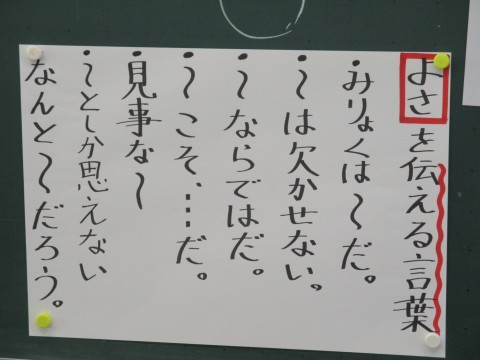 よさを伝える言葉
・みりょくは〜だ。
・〜は欠かせない。
・〜ならではだ。
・〜こそ、…だ。
・見事な〜
・〜としか思えない
・なんと〜だろう。